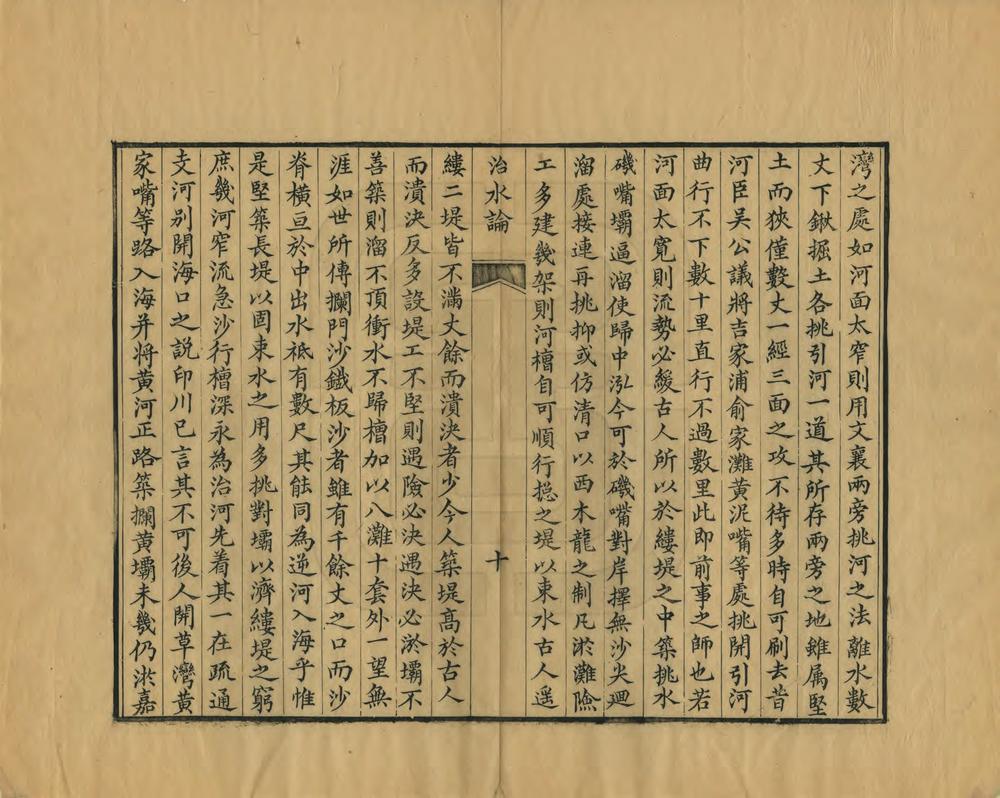 灣之處如河面太窄則用文襄兩旁挑河之法離水數
丈下鍬掘土各挑引河一道其所存兩旁之地雖属堅
土而狹僅數丈一經三面之攻不待多時自可刷去昔
河臣吴公議將吉家浦俞家灘黄泥嘴等處挑開引河
曲行不下數十里直行不過數里此即前事之師也若
河面太寛則流勢必緩古人所以於縷堤之中築挑水
磯嘴壩逼溜使歸中泓今可於磯嘴對岸擇無沙尖廻
溜處接連再挑抑或仿清口以西木龍之制凡淤灘險
工多建幾架則河槽自可順行揔之堤以束水古人遥
治水論
十
縷二堤皆不滿丈餘而潰決者少今人築堤髙於古人
而潰決反多設堤工不堅則遇險必決遇決必淤壩不
善築則溜不頂衝水不歸槽加以八灘十套外一望無
涯如世所傳攔門沙鐵板沙者雖有千餘丈之口而沙
脊橫亘於中出水祗有數尺其能同為逆河入海乎惟
是堅築長堤以固束水之用多挑對壩以濟縷堤之窮
庶幾河窄流急沙行槽深永為治河先着其一在疏通
支河别開海口之説印川已言其不可後人開草灣黄
家嘴等路入海并將黄河正路築攔黄壩未幾仍淤嘉